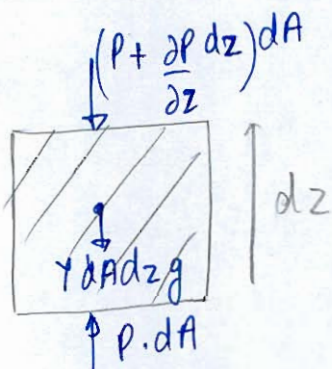 (P + ∂P/∂z dz) dA
dz
γ dA dz g
P. dA